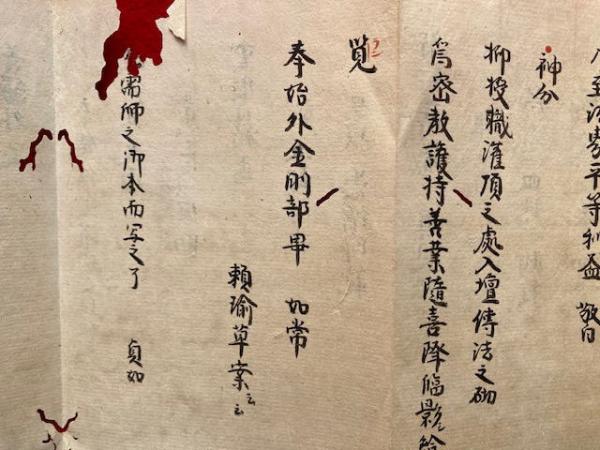 至法界平等利益 敬白
神分
抑授職灌頂之處入壇傳法之砌
爲密教護持善業隨喜降臨影
覚
奉始外金剛部畢 如常
賴瑜草案云云
師之御本而写之了 貞如